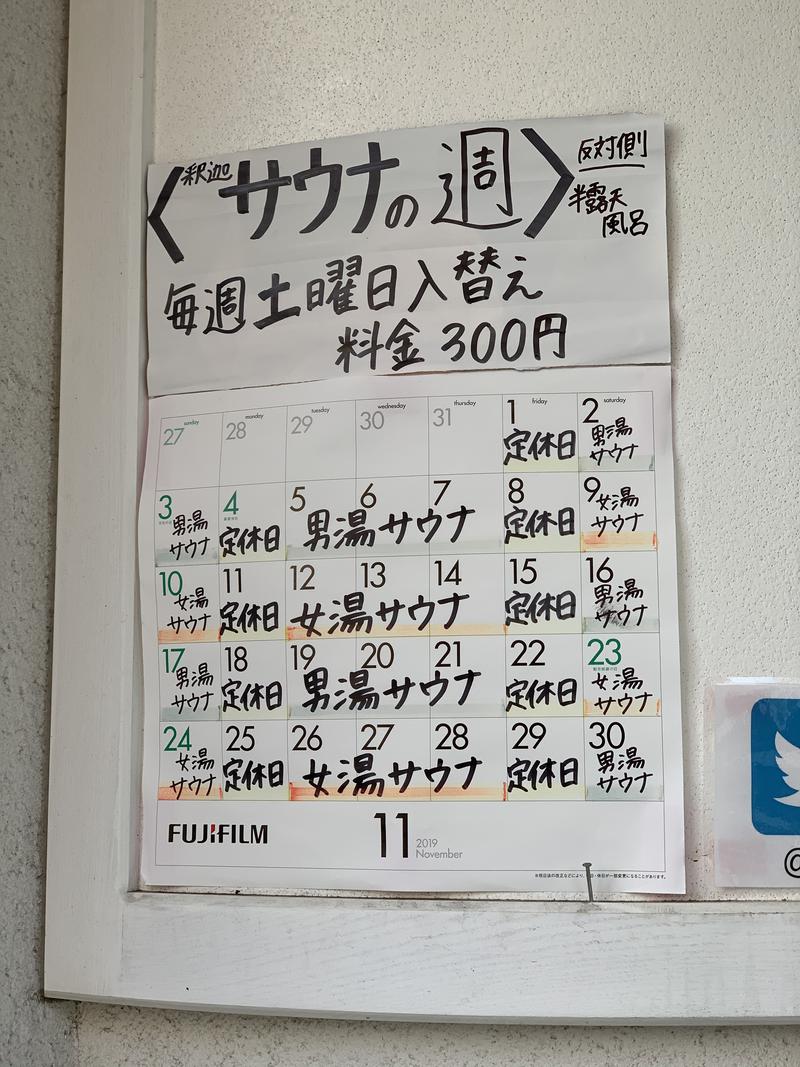 釈迦
〈サウナの週〉
反対側
半露天
風呂
毎週土曜日入替え
料金300円
sunday monday tuesday wednesday thursday friday saturday
27 28 29 30 31 1 2
定休日 男湯サウナ
3 4 5 6 7 8 9
男湯サウナ 定休日 男湯サウナ 定休日 女湯サウナ
10 11 12 13 14 15 16
女湯サウナ 定休日 女湯サウナ 定休日 男湯サウナ
17 18 19 20 21 22 23
男湯サウナ 定休日 男湯サウナ 定休日 女湯サウナ
24 25 26 27 28 29 30
女湯サウナ 定休日 女湯サウナ 定休日 男湯サウナ
FUJIFILM 11 2019
November
@